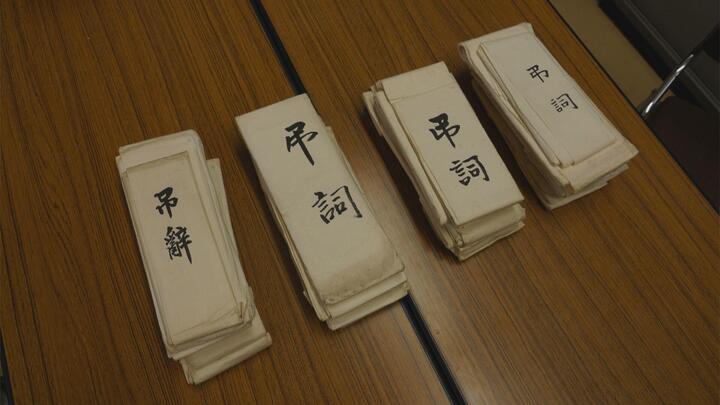 弔辭
弔詞
弔詞
弔詞